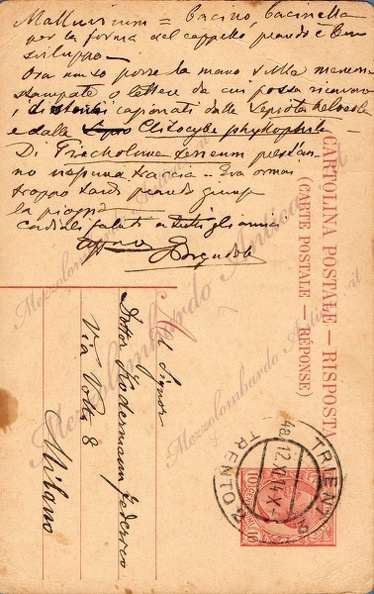 Malluvinum = Cacino, Cacinella
per la forma del cappello quando è ben
sviluppo -
Ora un so porre la mano sulla
stampato o lettere da cui possa ricavare
i disturbi cagionati dalle Lepiota helveola
e dalla Clitocybe phyllophila
Di Tricholoma terreum quest'an-
no nessuna traccia - Era ormai
troppo tardi quando giunse
la pioggia
Cordiali saluti a tutti gli amici
CARTOLINA POSTALE - RISPOSTA
(CARTE POSTALE - RÉPONSE)
Al Signor
Dottor Federico
Via Volta 8
Milano
TRIENT 3
12 XI 14 X
TRENTO 3
10
Mezzolombardo Antica.it
Mezzolombardo Antica.it
Mezzolombardo Antica.it